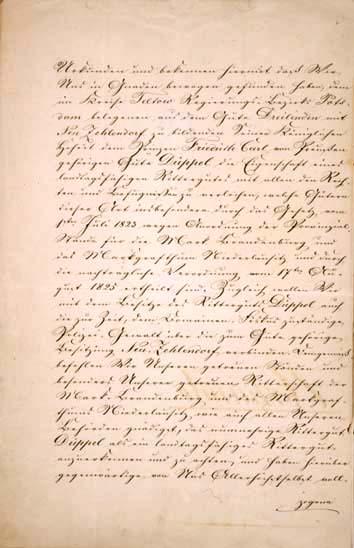 Urkunden und bekennen hiermit dasz Wir
Uns in Gnaden bewogen gefunden haben, dem
im Kreise Teltow Regierungs-Bezirks Pots-
dam belegenen aus dem Gute Dreilinden mit
Neu-Zehlendorf zu bildenden Seiner Königlichen
Hoheit dem Prinzen Friedrich Carl von Preuszen
gehörigen Gute Düppel die Eigenschaft eines
landtagsfähigen Rittergutes mit allen den Rech-
ten und Befugnissen zu verleihen, welche Gütern
dieser Art insbesondere durch das Gesetz vom
1sten Juli 1823 wegen Anordnung der Provinzial-
Stände für die Mark Brandenburg und
das Markgrafthum Niederlausitz und durch
die nachträgliche Verordnung vom 17ten Au-
gust 1825 ertheilt sind. Zugleich wollen Wir
mit dem Besitze des Ritterguts Düppel auch
die zur Zeit dem Domainen-Fiskus zuständige
Polizei-Gewalt über die zum Gute gehörige
Besitzung Neu-Zehlendorf verbinden. Demgemäsz
befehlen Wir Unseren getreuen Ständen und
besonders Unserer getreuen Ritterschaft der
Mark Brandenburg und des Markgraf-
thums Niederlausitz, wie auch allen Unseren
Behörden gnädigst, das nunmehrige Rittergut
Düppel als ein landtagsfähiges Rittergut
anzuerkennen und zu achten, und haben hierüber
gegenwärtige von Uns Allerhöchstselbst voll-
zogene